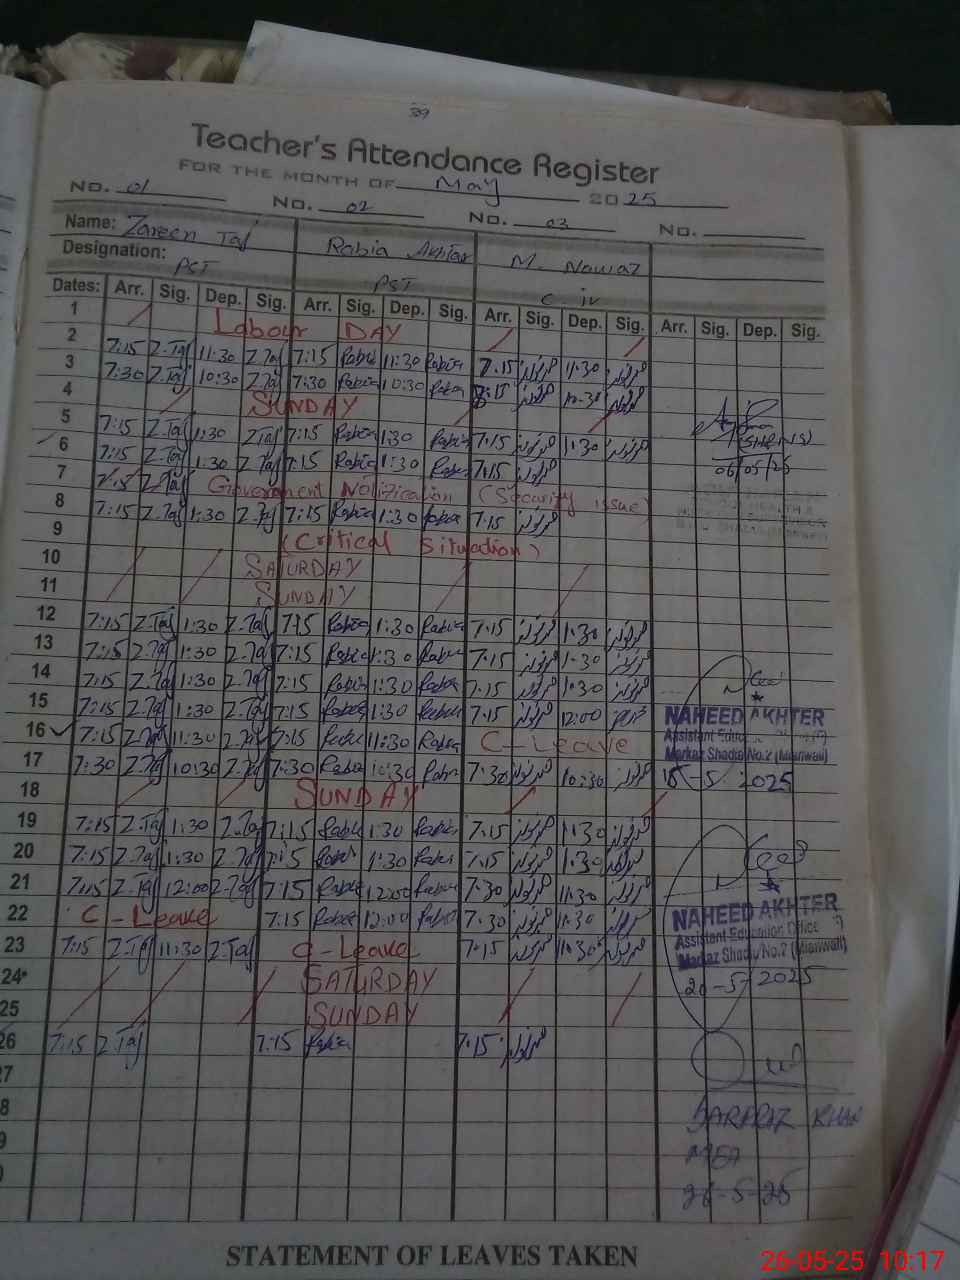 Teacher's Attendance Register
FOR THE MONTH OF May 2025
No. 01 No. 02 No. 03 No.
Name: Zareen Taj Rabia Akhtar M. Nawaz
Designation: PST PST C-iv
Dates: Arr. Sig. Dep. Sig. Arr. Sig. Dep. Sig. Arr. Sig. Dep. Sig. Arr. Sig. Dep. Sig.
1 Labour DAY
2 7:15 Z.Taj 11:30 Z.Taj 7:15 Rabia 11:30 Rabia 7:15 11:30
3 7:30 Z.Taj 10:30 Z.Taj 7:30 Rabia 10:30 Rabia 7:15 10:30
4 SUNDAY
5 7:15 Z.Taj 1:30 Z.Taj 7:15 Rabia 1:30 Rabia 7:15 1:30
6 7:15 Z.Taj 1:30 Z.Taj 7:15 Rabia 1:30 Rabia 7:15 06/05/25
7 7:15 Z.Taj Government Notification (Security issue)
8 7:15 Z.Taj 1:30 Z.Taj 7:15 Rabia 1:30 Rabia 7:15
9 (Critical Situation)
10 SATURDAY
11 SUNDAY
12 7:15 Z.Taj 1:30 Z.Taj 7:15 Rabia 1:30 Rabia 7:15 1:30
13 7:15 Z.Taj 1:30 Z.Taj 7:15 Rabia 1:30 Rabia 7:15 1:30
14 7:15 Z.Taj 1:30 Z.Taj 7:15 Rabia 1:30 Rabia 7:15 1:30
15 7:15 Z.Taj 1:30 Z.Taj 7:15 Rabia 1:30 Rabia 7:15 12:00
NAHEED AKHTER
16 7:15 Z.Taj 11:30 Z.Taj 7:15 Rabia 11:30 Rabia C-Leave
Assistant
Markaz Shadia No.2 (Mianwali)
17 7:30 Z.Taj 10:30 Z.Taj 7:30 Rabia 10:30 Rabia 7:30 10:30
15-5-2025
18 SUNDAY
19 7:15 Z.Taj 1:30 Z.Taj 7:15 Rabia 1:30 Rabia 7:15 1:30
20 7:15 Z.Taj 1:30 Z.Taj 7:15 Rabia 1:30 Rabia 7:15 1:30
21 7:15 Z.Taj 12:00 Z.Taj 7:15 Rabia 12:00 Rabia 7:30 11:30
22 C-Leave 7:15 Rabia 12:00 Rabia 7:30 11:30
NAHEED AKHTER
Assistant Education Office
23 7:15 Z.Taj 11:30 Z.Taj C-Leave 7:15 11:30
Markaz Shadia No.2 (Mianwali)
24 SATURDAY
20-5-2025
25 SUNDAY
26 7:15 Z.Taj 7:15 Rabia 7:15
27
28
SARFRAZ KHAN
29
MEA
30
26-5-25
STATEMENT OF LEAVES TAKEN
26-05-25 10:17